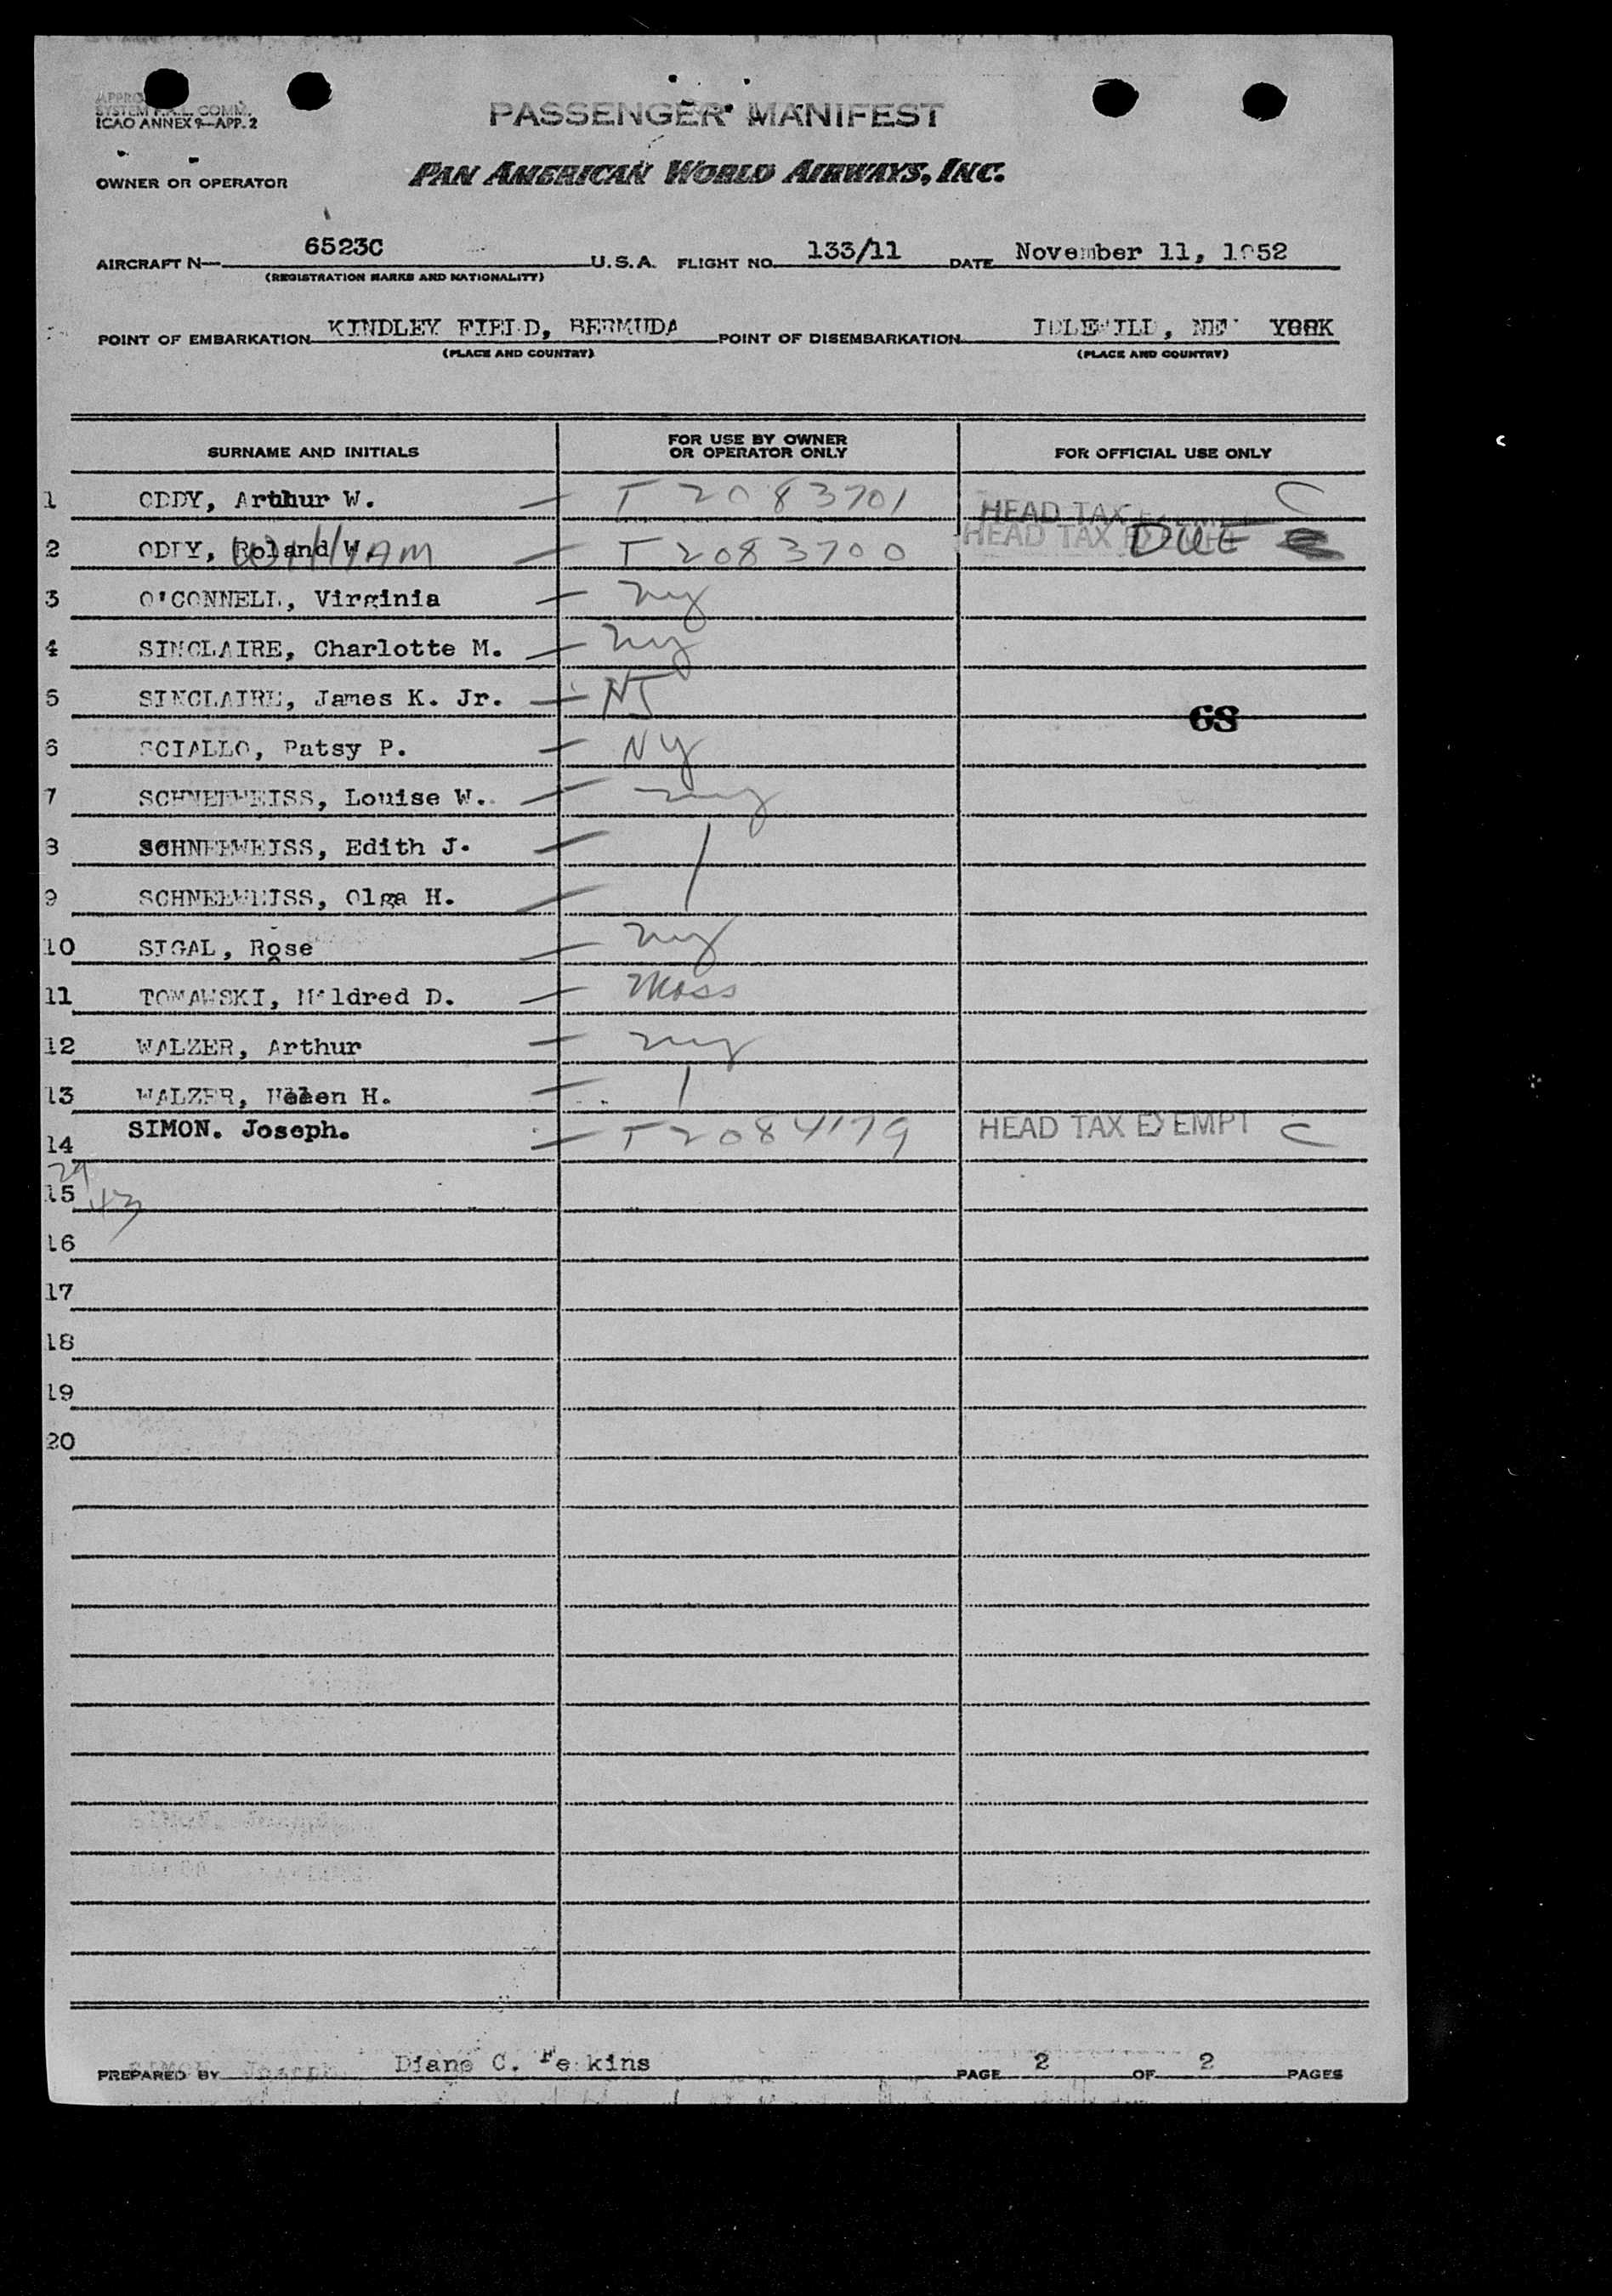 SYSTEM F.A.L. COMM.
ICAO ANNEX 9—APP. 2
PASSENGER MANIFEST
OWNER OR OPERATOR PAN AMERICAN WORLD AIRWAYS, INC.
AIRCRAFT N— 6523C U.S.A. FLIGHT NO. 133/11 DATE November 11, 1952
(REGISTRATION MARKS AND NATIONALITY)
POINT OF EMBARKATION KINDLEY FIELD, BERMUDA POINT OF DISEMBARKATION IDLEWILD, NEW YORK
(PLACE AND COUNTRY) (PLACE AND COUNTRY)
SURNAME AND INITIALS FOR USE BY OWNER OR OPERATOR ONLY FOR OFFICIAL USE ONLY
1 ODDY, Arthur W. — T2083701 HEAD TAX C
2 ODDY, Roland W. WILLIAM — T2083700 HEAD TAX EXEMPT DUE
3 O'CONNELL, Virginia — ny
4 SINCLAIRE, Charlotte M. — ny
5 SINCLAIRE, James K. Jr. — NJ
68
6 SCIALLO, Patsy P. — NY
7 SCHNEEWEISS, Louise W. — ny
8 SCHNEEWEISS, Edith J. — |
9 SCHNEEWEISS, Olga H. — |
10 SIGAL, Rose — ny
11 TOMAWSKI, Mildred D. — Mass
12 WALZER, Arthur — ny
13 WALZER, Helen H. — |
14 SIMON. Joseph. — T2084179 HEAD TAX EXEMPT C
29
15 43
16
17
18
19
20
PREPARED BY Diane C. Perkins PAGE 2 OF 2 PAGES